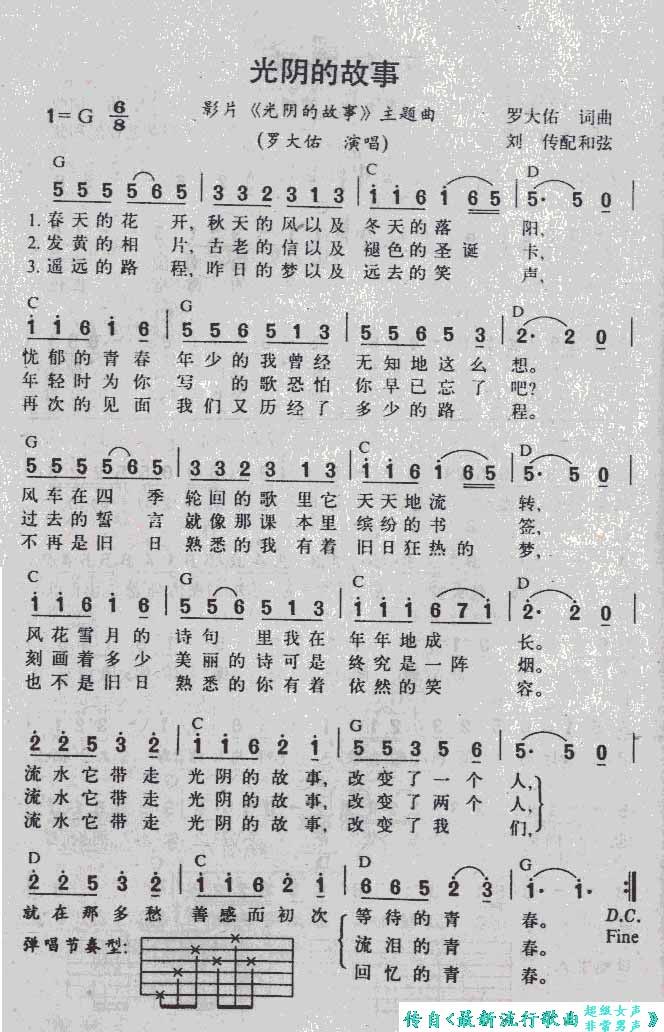 光阴的故事
1=G 6/8
影片《光阴的故事》主题曲
(罗大佑 演唱)
罗大佑 词曲
刘 传配和弦
G C D
5 5 5 5 6 5 | 3 3 2 3 1 3 | 1 1 6 1 6 5 | 5· 5 0
1. 春天的花 开, 秋天的风以及 冬天的落 阳,
2. 发黄的相 片, 古老的信以及 褪色的圣诞 卡,
3. 遥远的路 程, 昨日的梦以及 远去的笑 声,
C G D
1 1 6 1 6 | 5 5 6 5 1 3 | 5 5 6 5 5 3 | 2· 2 0
忧郁的青春 年少的我曾经 无知地这么 想。
年轻时为你 写 的歌恐怕 你早已忘了 吧?
再次的见面 我们又历经了 多少的路 程。
G C D
5 5 5 5 6 5 | 3 3 2 3 3 3 | 1 1 6 1 6 5 | 5· 5 0
风车在四 季 轮回的歌 里它 天天地流 转,
过去的誓 言 就像那课 本里 缤纷的书 签,
不再是旧 日 熟悉的我 有着 旧日狂热的 梦,
C G C D
1 1 6 1 6 | 5 5 6 5 1 3 | 1 1 1 6 7 1 | 2· 2 0
风花雪月的 诗句 里我在 年年地成 长。
刻画着多少 美丽的诗可是 终究是一阵 烟。
也不是旧日 熟悉的你有着 依然的笑 容。
D C G
2 2 5 3 2 | 1 1 6 2 1 | 5 5 3 5 6 | 5· 5 0
流水它带走 光阴的故 事, 改变了一个 人,
流水它带走 光阴的故 事, 改变了两个 人,
流水它带走 光阴的故 事, 改变了我 们,
D C D G
2 2 5 3 2 | 1 1 6 2 1 | 6 6 5 2 3 | 1· 1· :||
就在那多愁 善感而初次 等待的青 春。 D.C.
弹唱节奏型: 流泪的青 春。 Fine
回忆的青 春。
传自<最新流行歌曲 超级女声 非常男声 》